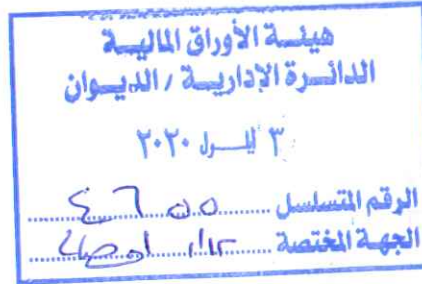 هيئة الأوراق المالية
الدائرة الإدارية / الديوان
٣ ايلول ٢٠٢٠
الرقم المتسلسل ٤٦٥٥
الجهة المختصة